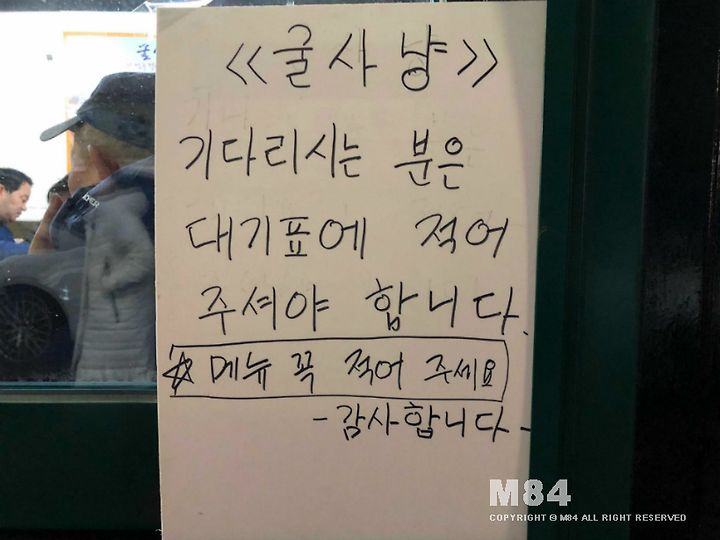 <<굴사냥>>
기다리시는 분은
대기표에 적어
주셔야 합니다.
☆ 메뉴 꼭 적어 주세요
-감사합니다-
M84
COPYRIGHT © M84 ALL RIGHT RESERVED